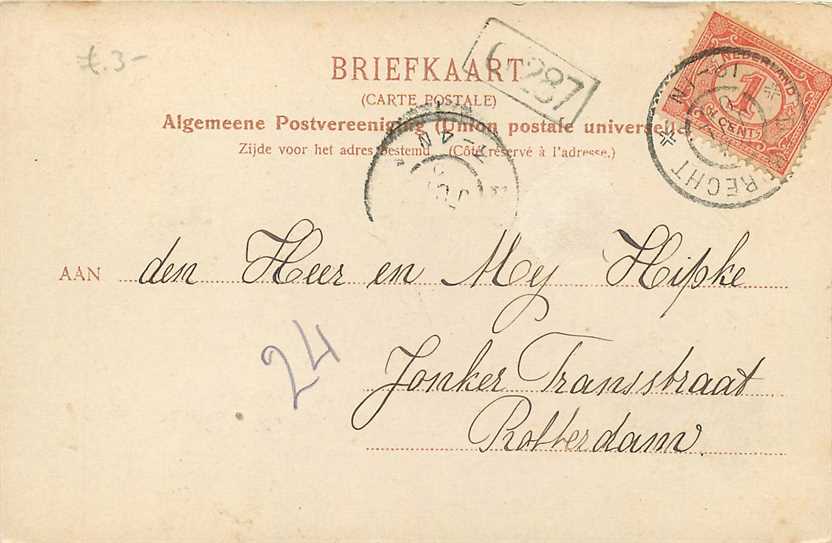 £.3-
BRIEFKAART
(CARTE POSTALE)
Algemeene Postvereeniging (Union postale universelle)
Zijde voor het adres bestemd (Côté réservé à l'adresse.)
287
NEDERLAND
1
CENT
10-12 N
RECHT
AAN den Heer en Mej Hipke
24
Jonker Transstraat
Rotterdam.